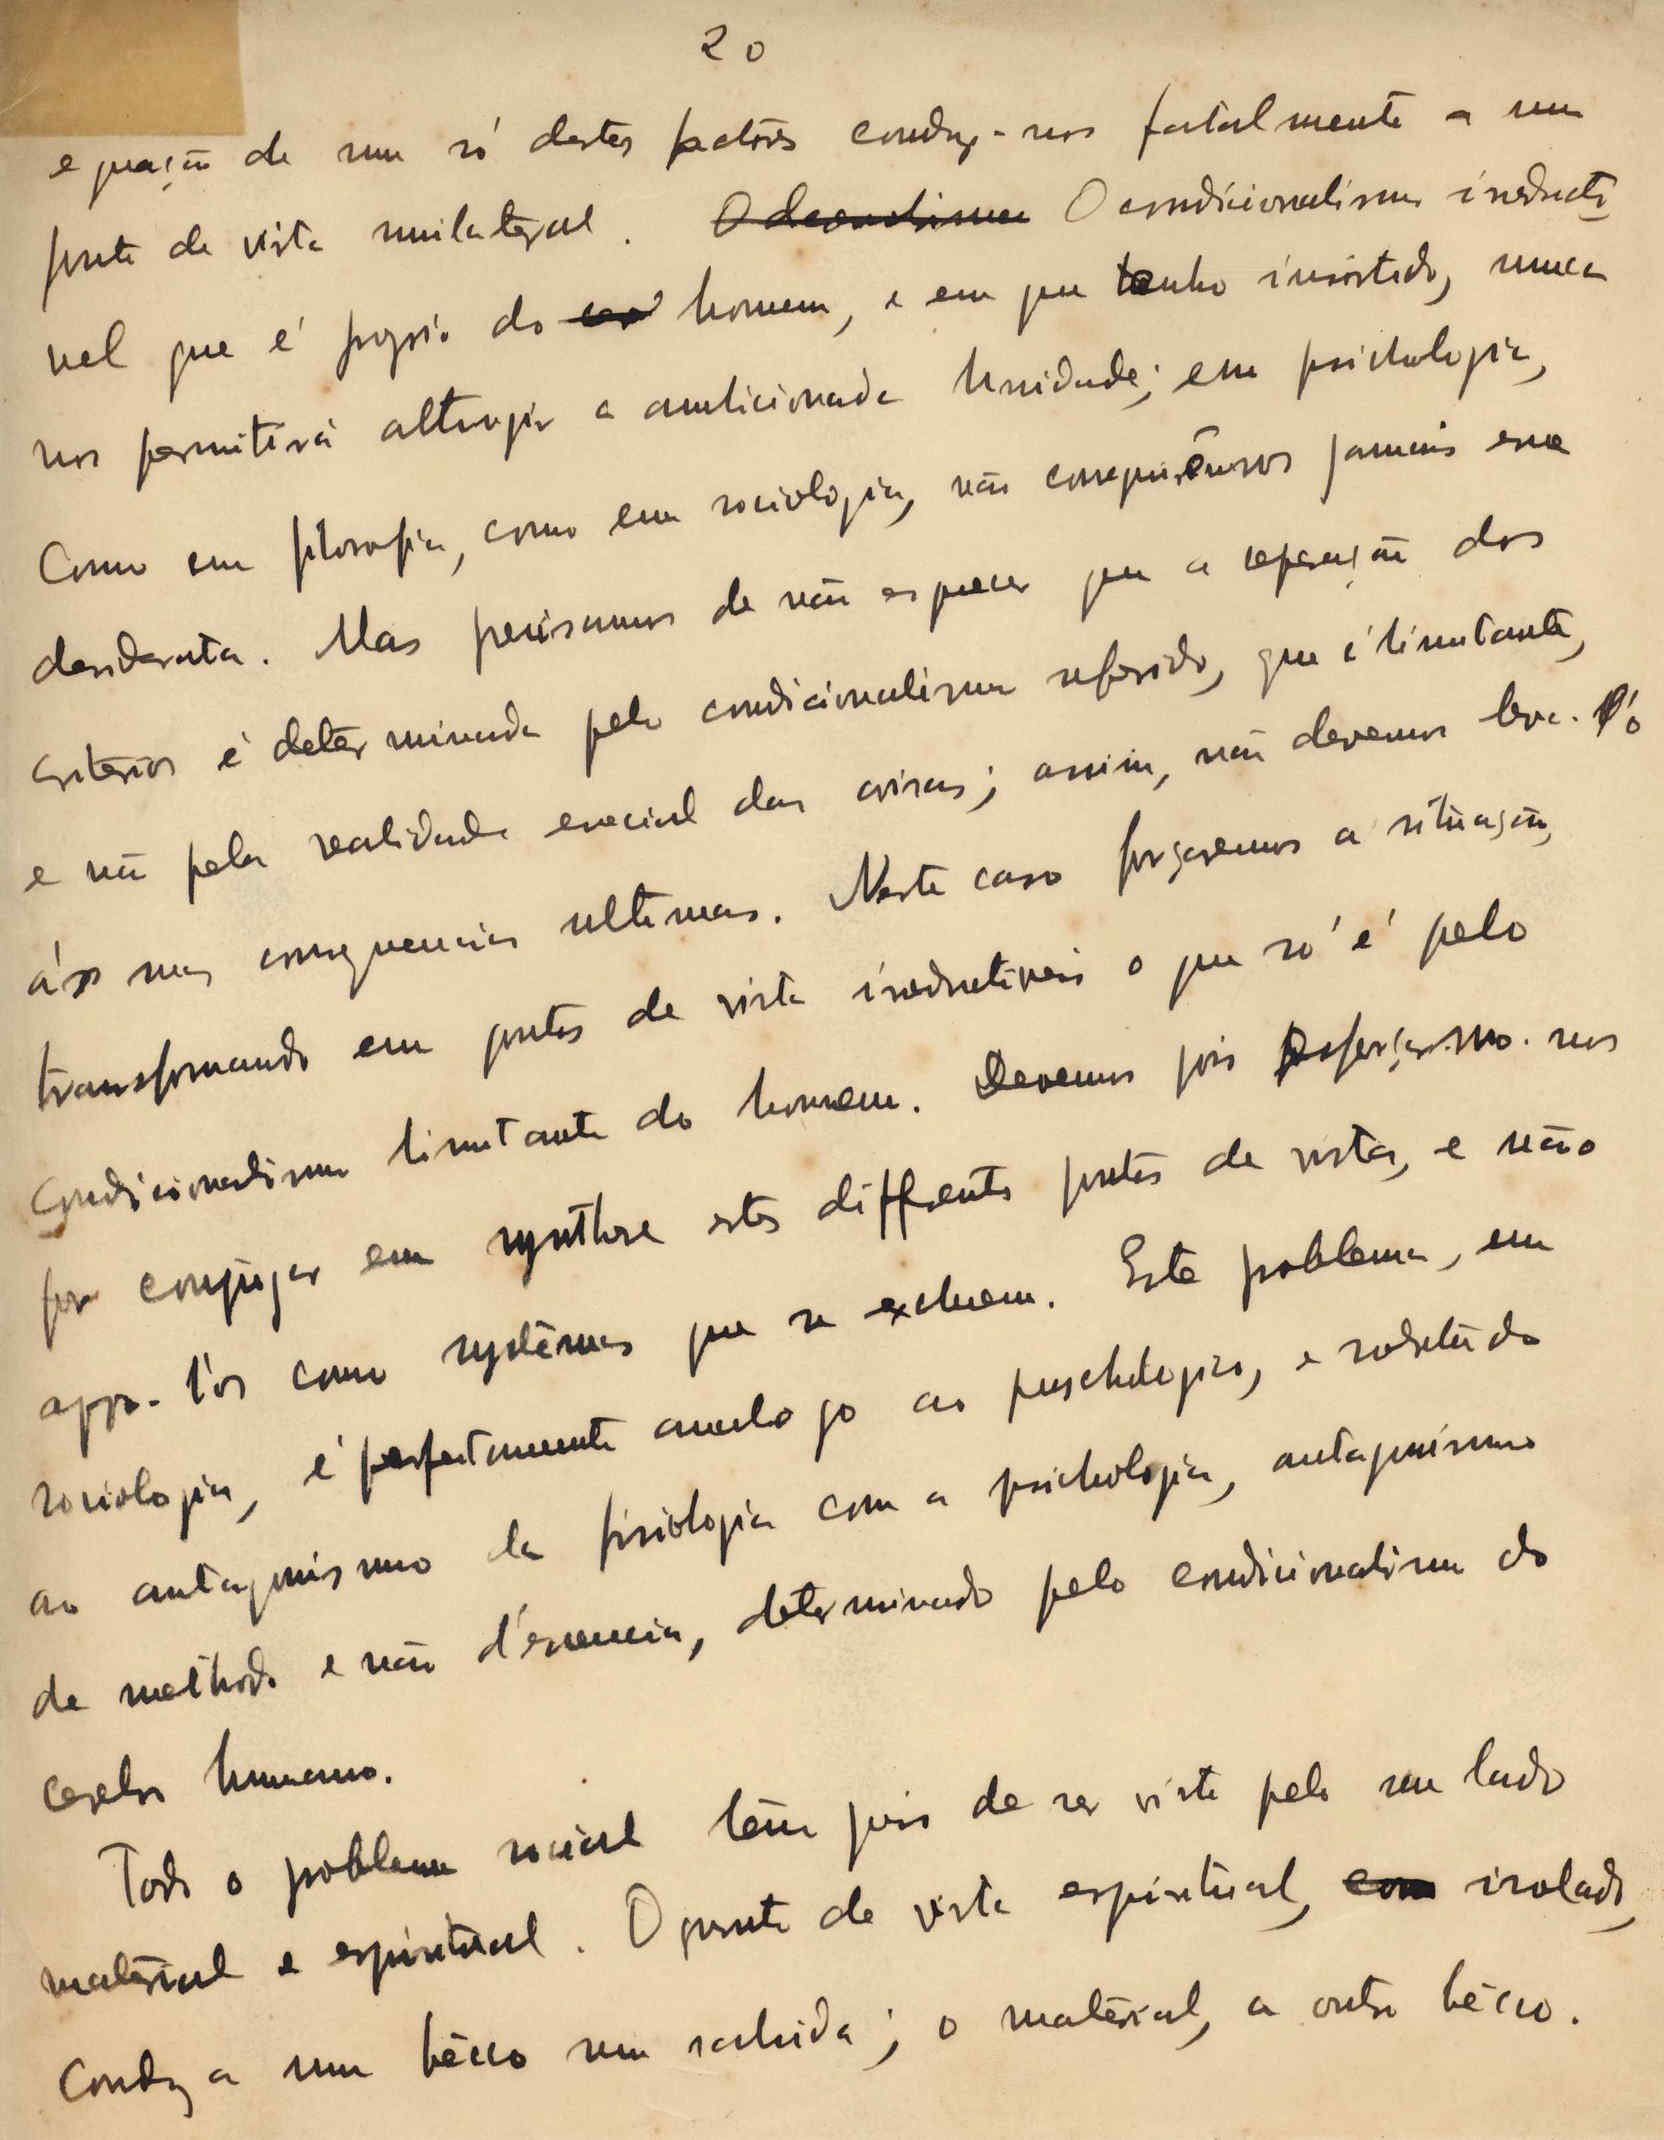 20
equação de um só destes factôres conduz-nos fatalmente a um
ponto de vista unilateral. O condicionalismo irreducti-
vel que é proprio do homem, e em que tenho insistido, nunca
nos permitirá attingir a ambicionada Unidade; em psichologia,
como em filosofia, como em sociologia, não conseguirêmos jamais esse
desiderata. Mas precisamos de não esquecer que a separação dos
criterios é determinada pelo condicionalismo referido, que é limitante,
e não pela realidade essencial das coisas; assim, não devemos leva-l'o
ás suas consequencias ultimas. Neste caso forçaremos a situação,
transformando em pontos de vista irreductiveis o que só é pelo
condicionalismo limitante do homem. Devemos pois esforçarmo-nos
por conjugar em synthese estes differentes pontos de vista, e não
oppo-l'os como systêmas que se excluem. Este problema, em
sociologia, é perfeitamente analogo ao psychologico, e sobretudo
ao antagonismo da fisiologia com a psichologia, antagonismo
de methodo e não d'essencia, determinado pelo condicionalismo do
cerebro humano.
Todo o problema social têm pois de ser visto pelo seu lado
matérial e espiritual. O ponto de vista espiritual, isolado,
conduz a um bêcco sem sahida; o matérial, a outro bêcco.